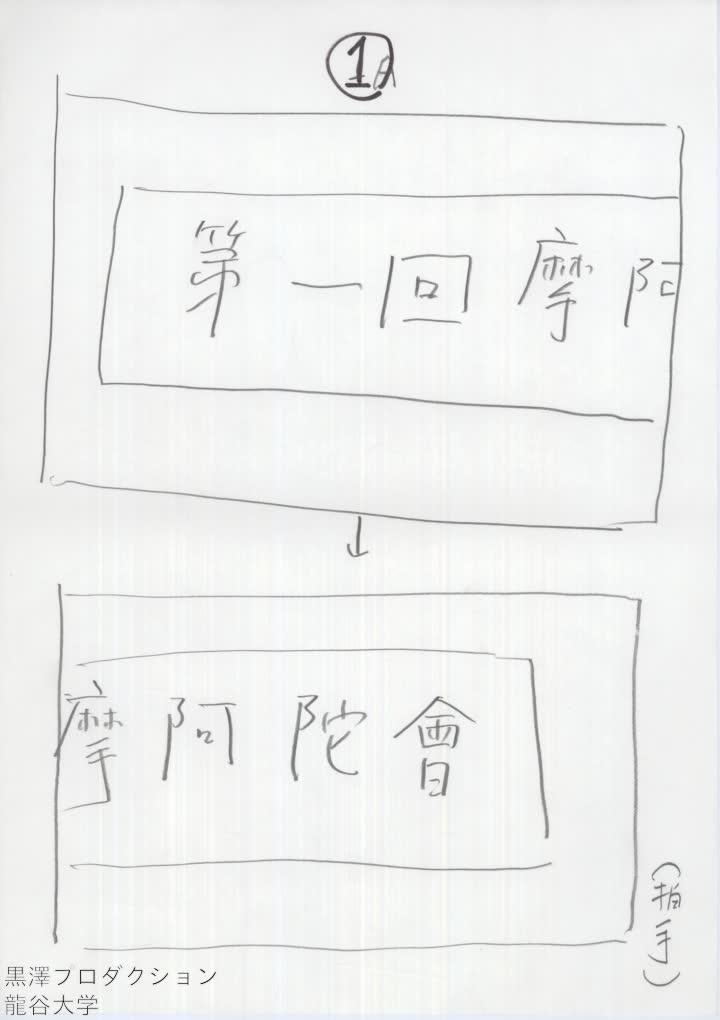 1
第一回摩阿
摩阿陀會
(拍手)
黒澤プロダクション
龍谷大学